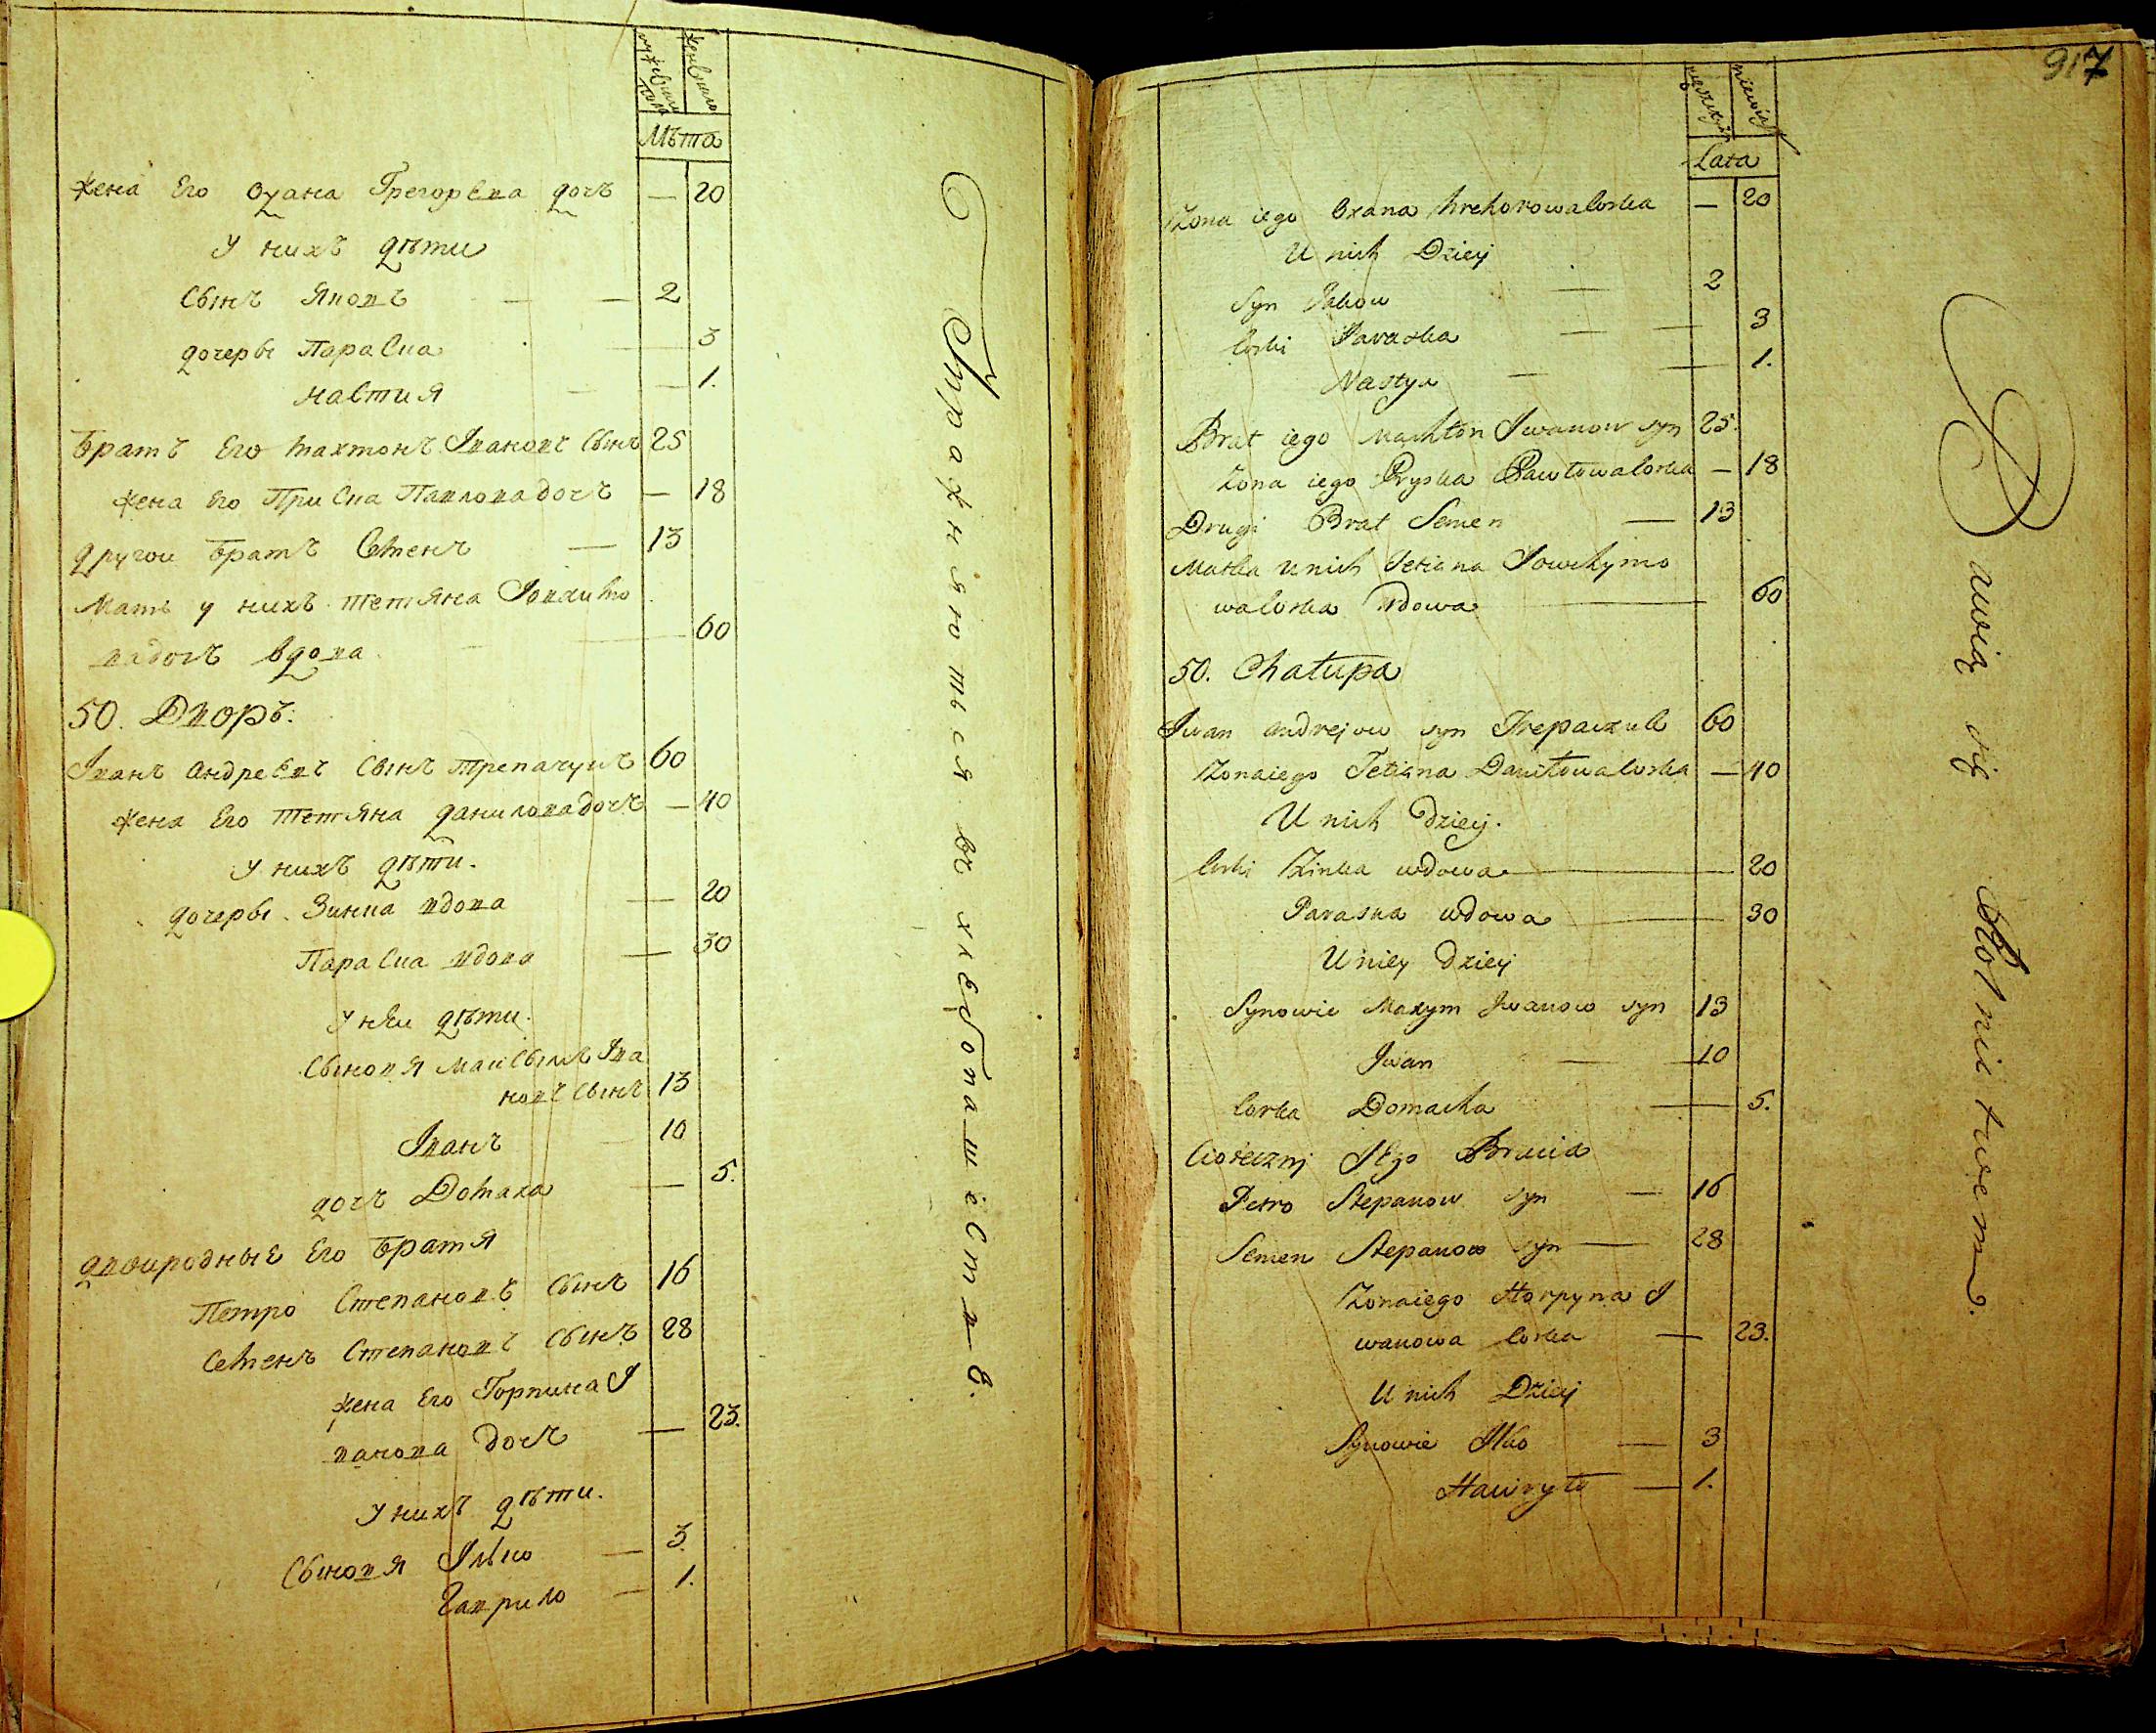 Мужеска пола
Женска
Лѣта
Жена Его Оѯана Грегорева дочъ — 20
У нихъ дѣти
Сынъ Яковъ — — 2
дочеры Параска — 3
Настия — — 1.
Братъ Его Махтонъ Ивановъ Сынъ 25
Жена Его Приска Павловадочъ — 18
Другои Братъ Семенъ — 13
Мать у нихъ Тетяна Іовхимо
вадочъ вдова — 60
50. Дворъ.
Іванъ Андреевъ Сынъ Трепачукъ 60
Жена Его Тетяна Даниловадочъ — 40
У нихъ дѣти.
дочеры Зинка вдова — 20
Параска вдова — 30
У неи дѣти.
Сыновя Максымъ Іва
новъ Сынъ 13
Іванъ 10
дочъ Домаха — 5.
Двоиродные Его Братя
Петро Степановъ Сынъ 16
Семенъ Степановъ Сынъ 28
Жена Его Горпина І
ванова дочъ — 23.
У нихъ дѣти.
Сыновя Ілько — 3.
Гаврило — 1.
Упражняються въ хлебопашестве.
917
Lata
Żona iego Oxana Hrehorowa Corka — 20
U nich Dzieij
Syn Jakow — 2
Corki Paraska — — 3
Nastya — — 1.
Brat iego Machton Iwanow syn 25.
Żona iego Pryska Pawłowa Corka — 18
Drugi Brat Semen — 13
Matka u nich Tetiana Jowchymo
wa Corka wdowa — 60
50. Chałupa
Iwan Andrejow syn Trepaczuk 60
Żona iego Tetiana Daniłowa Corka — 40
U nich dzieij.
Corki Zinka wdowa — 20
Paraska wdowa — 30
U niey dzieij
Synowie Maxym Iwanow syn 13
Iwan — 10
Corka Domacha — 5.
Ciotecznj Jego Bracia
Petro Stepanow syn — 16
Semen Stepanow syn — 28
Żona iego Horpyna I
wanowa Corka — 23.
U nich Dzieij
Synowie Ilko — 3
Hawryło — 1.
Bawią się Rolnictwem.